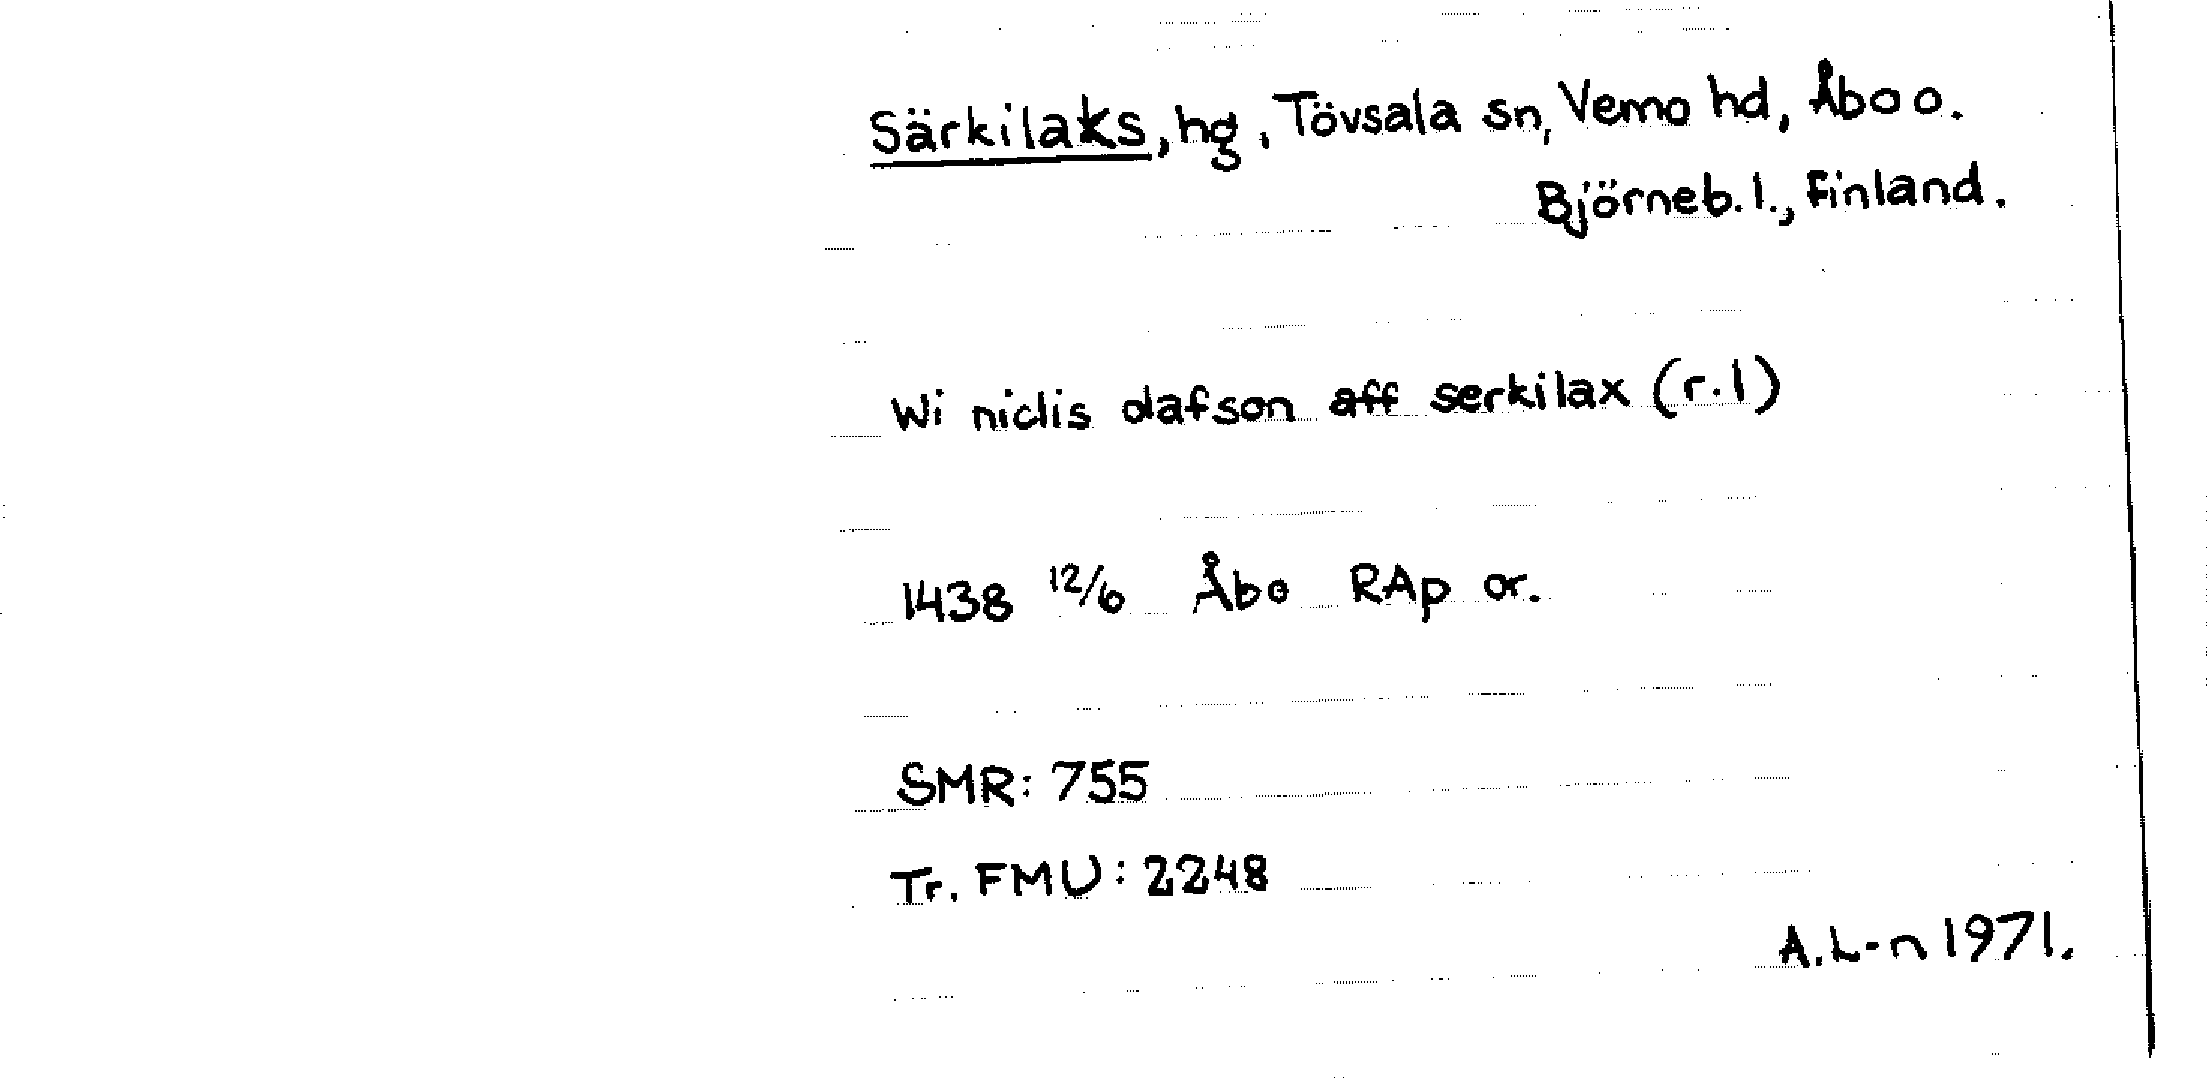 Särkilaks, hg, Tövsala sn, Vemo hd, Åbo o.
Björneb. l., Finland.
Wi niclis olafson aff serkilax (r.1)
1438 12/6 Åbo RAp or.
SMR: 755
Tr. FMU: 2248
A.L-n 1971.